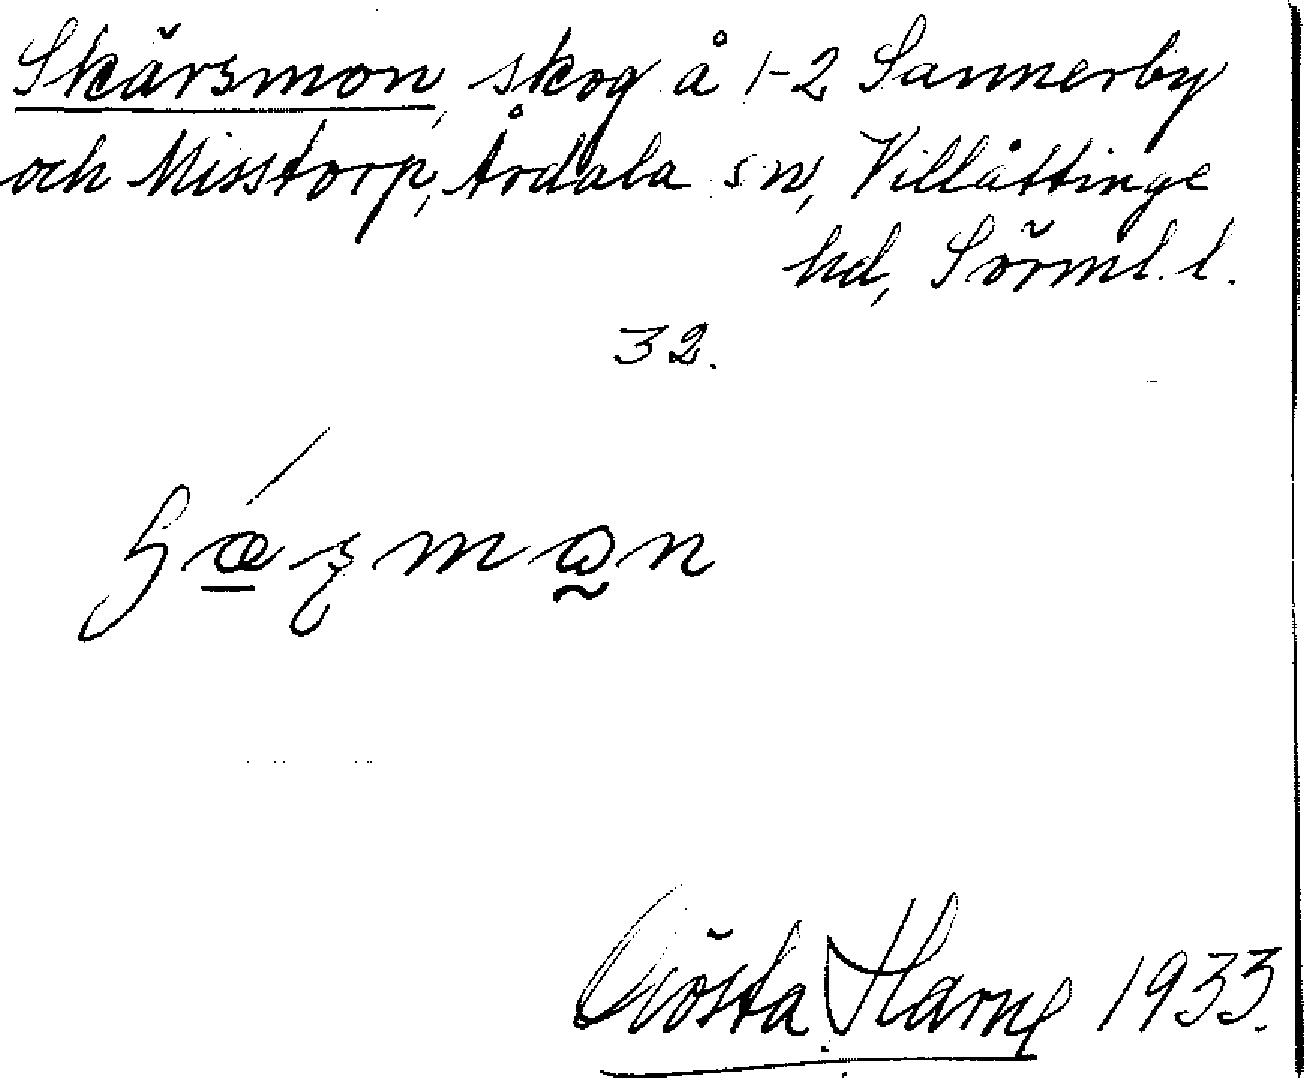 Skärsmon, skog å 1-2 Sannerby
och Misstorp, Årdala sn, Villåttinge
hd, Sörml. l.
32.
Gösta Harne 1933.